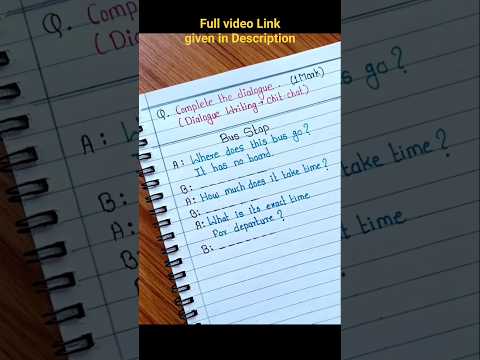 Full video Link
given in Description
Q. Complete the dialogue. (1 Mark)
(Dialogue Writing → chit chat)
Bus Stop
A: Where does this bus go?
It has no board.
B: _ _ _ _ _ _ _
A: How much does it take time?
B: _ _ _ _ _ _ _
A: What is its exact time
for departure?
B: _ _ _ _ _ _ _